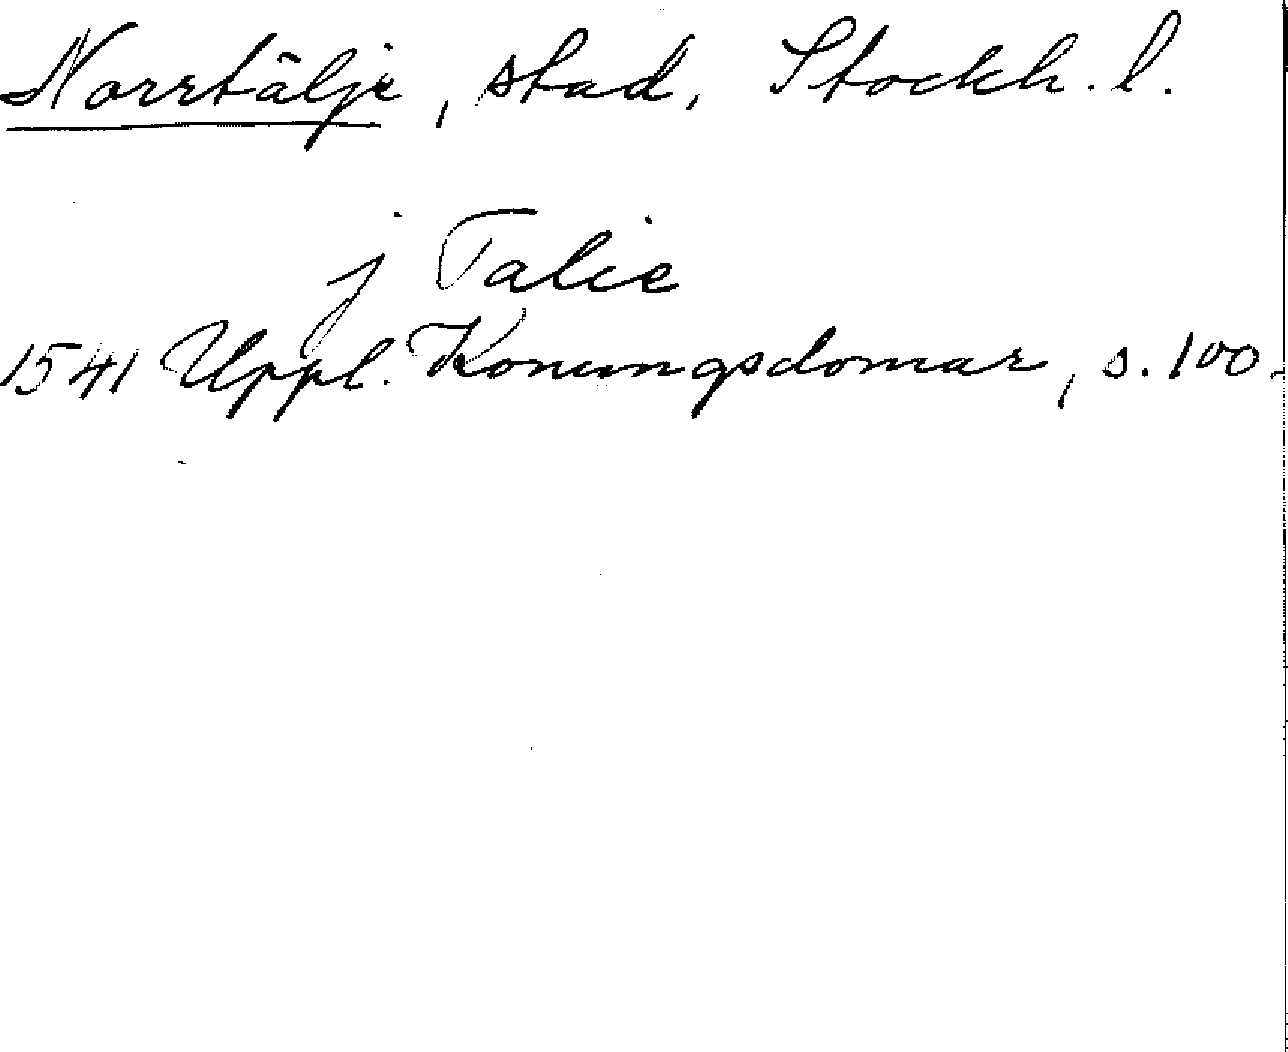 Norrtälje, stad, Stockh. l.
j Talie
1541 Uppl. Konungsdomar, s. 100.